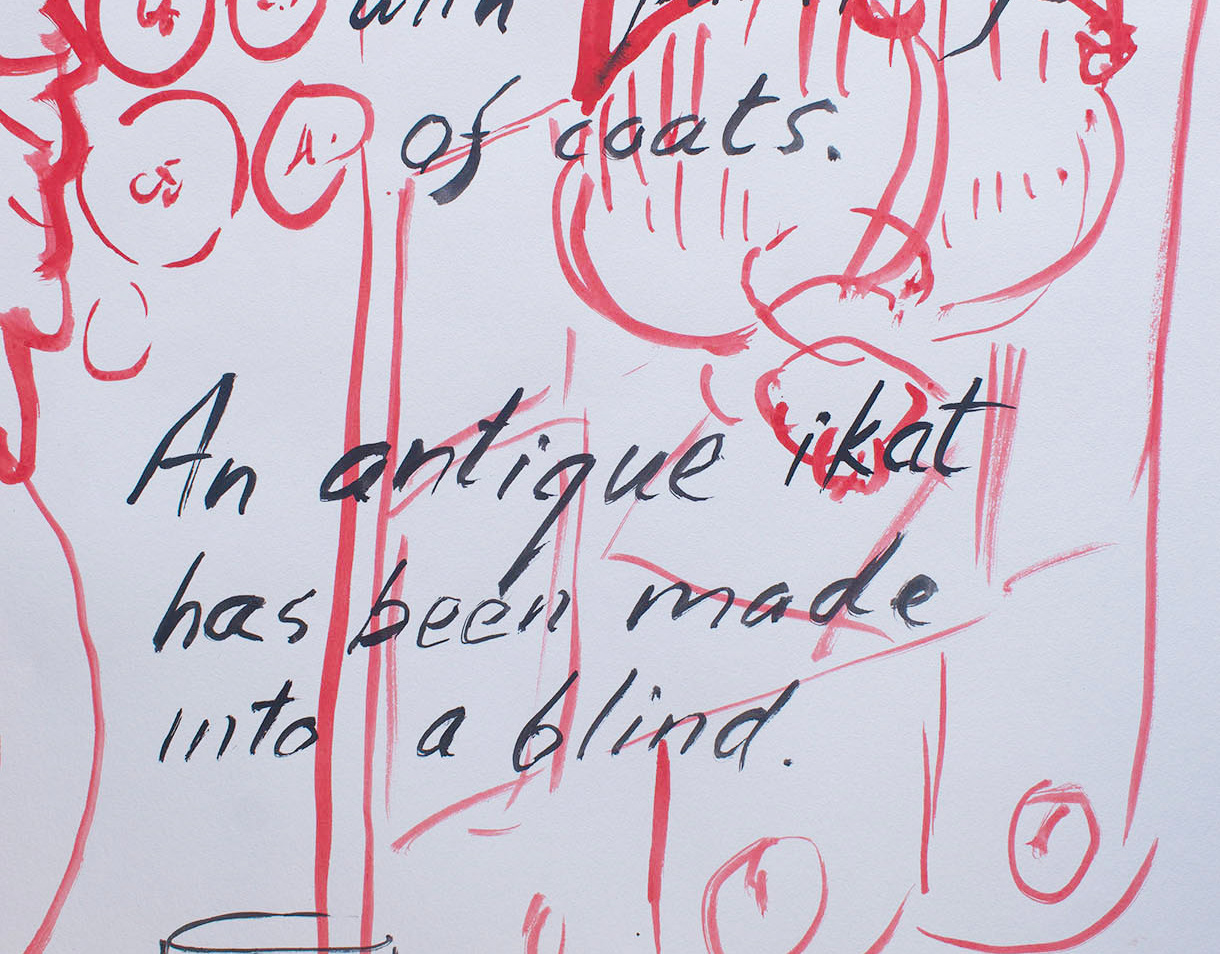 with
of coats.
An antique ikat
has been made
into a blind.